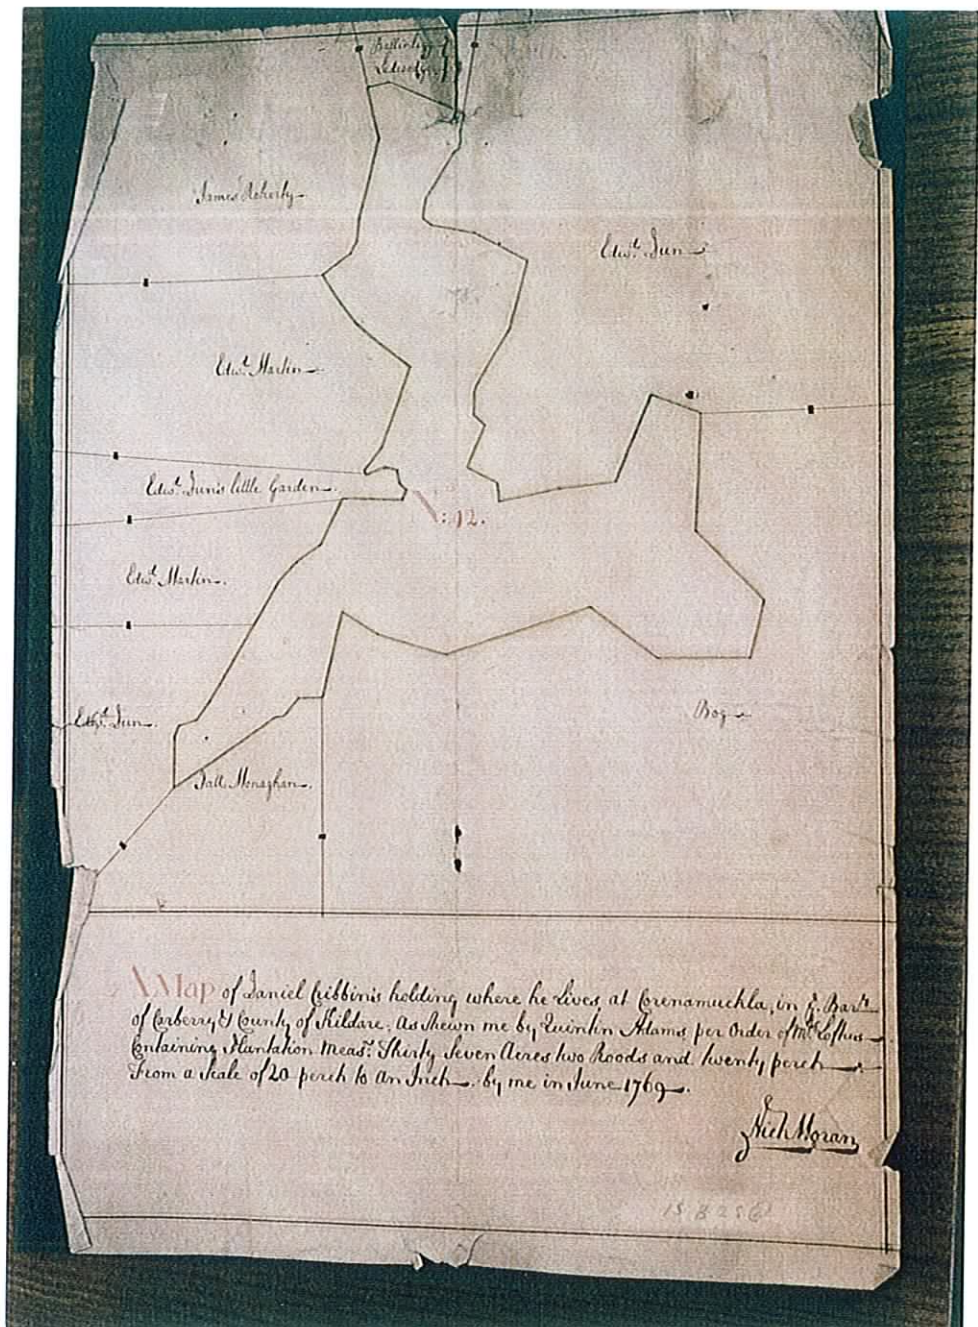 James Doherty
Edwd. Dun
Edwd. Martin
Edwd. Dun's little Garden
N: 12.
Edwd. Martin.
Edwd. Dun.
Bog
Patt. Monaghan.
A Map of Daniel Cribbin's holding where he Lives, at Corenamuchla, in ye. Barny.
of Carberry & County of Kildare, As Shewn me by Quintin Adams per Order of Mr. Loftus
Containing Plantation Measr. Thirty Seven Acres two Roods and twenty perch
From a Scale of 20 perch to an Inch. by me in June 1769.
Nich Moran